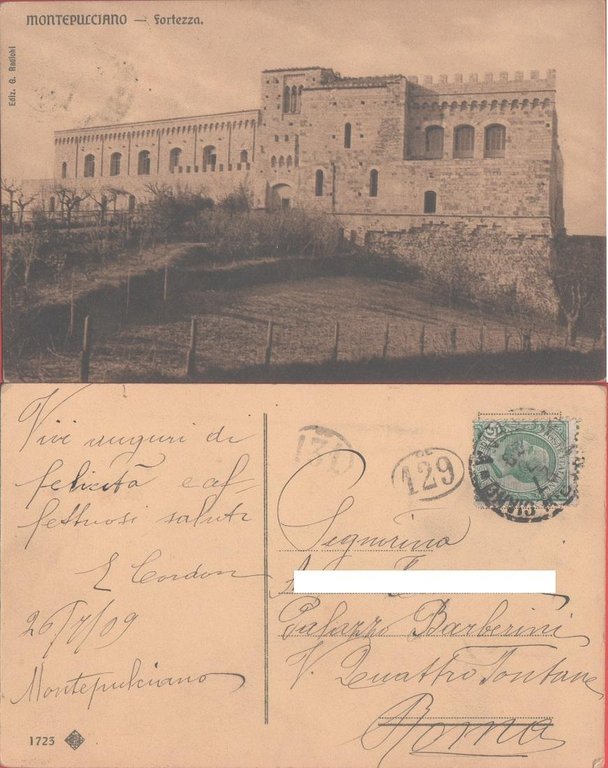 MONTEPULCIANO — Fortezza.
Ediz. G. Rasiohi
Vivi auguri di
felicità e af-
fettuosi saluti
E Cordon
26/7/09
Montepulciano
1723
130
129
Signorina
Palazzo Barberini
V. Quattro Fontane
Roma